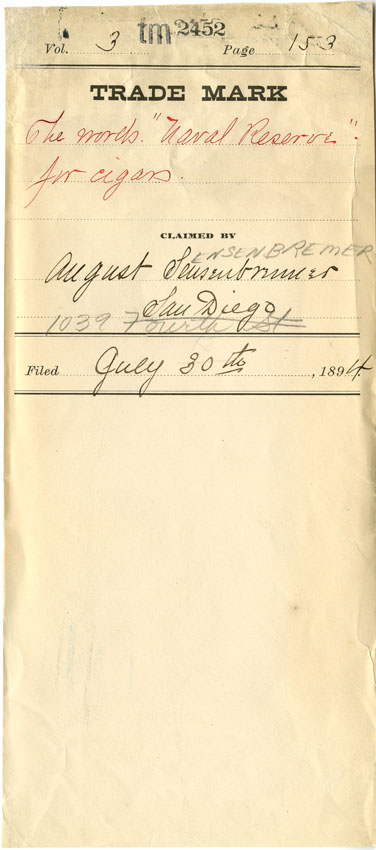 tm 2452
Vol. 3 Page 153
TRADE MARK
The words "Naval Reserve"
for cigars.
CLAIMED BY
ENSENBREMER
August Sensenbrenner
San Diego
1039 Fourth St
Filed July 30th, 1894